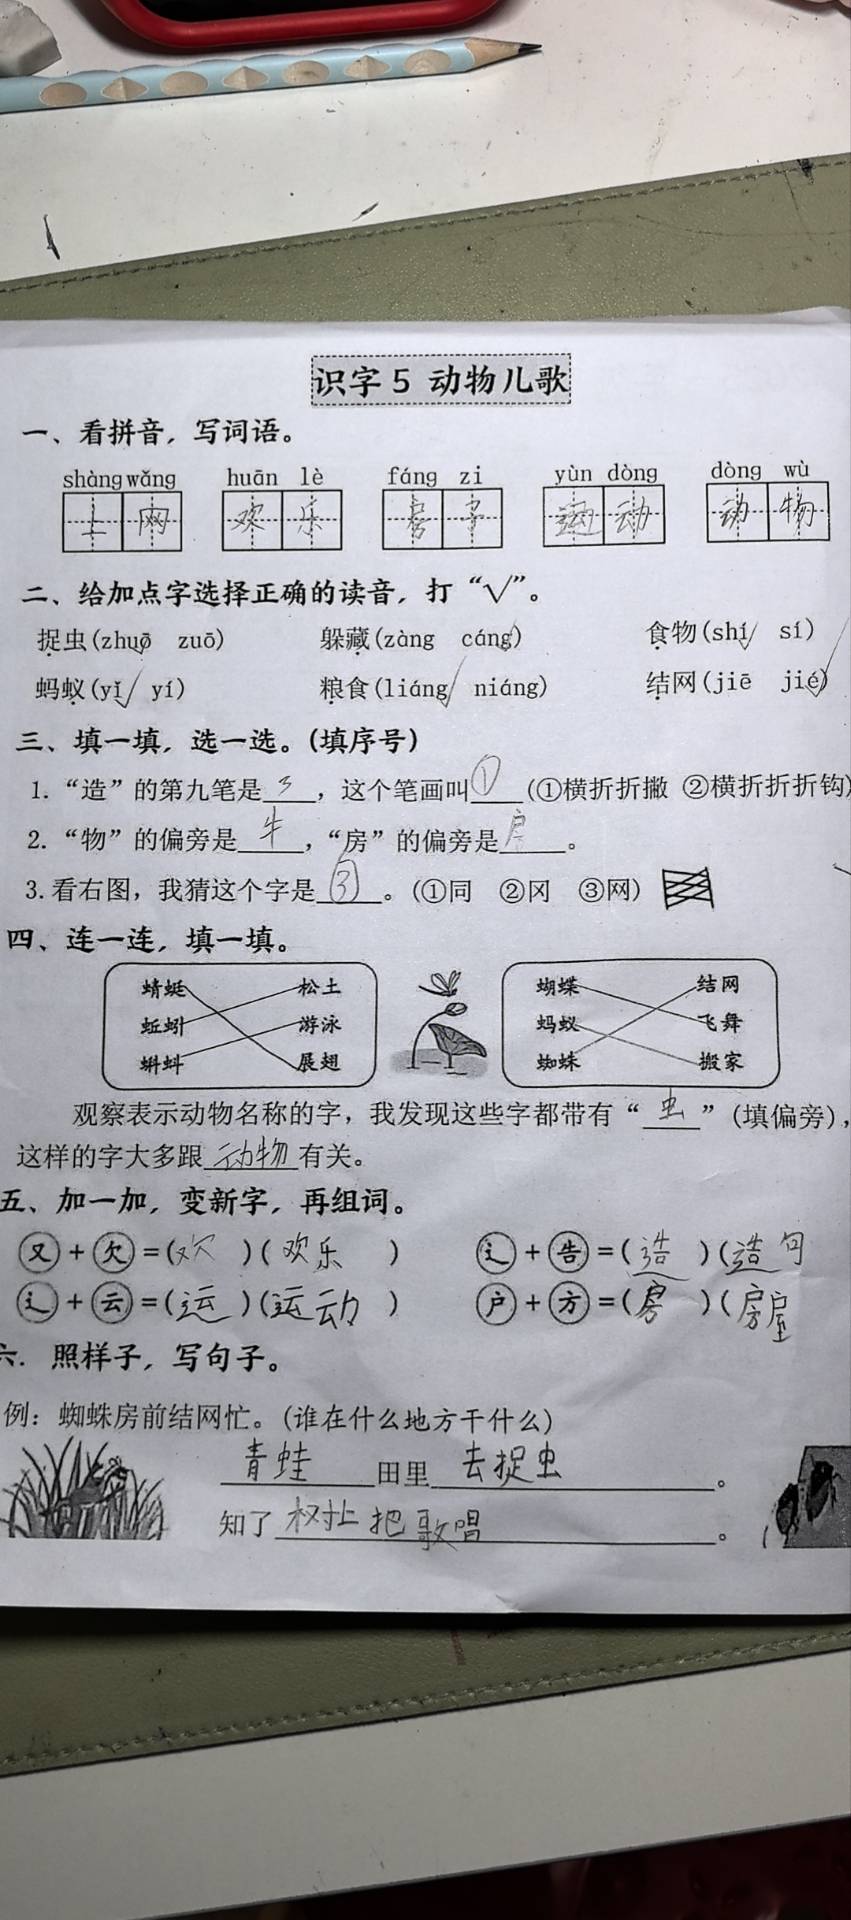 识字5 动物儿歌
一、看拼音，写词语。
shàng wǎng huān lè fáng zi yùn dòng dòng wù
上网 欢乐 房子 运动 动物
二、给加点字选择正确的读音，打“√”。
捉虫(zhuō zuō) 躲藏(zàng cáng) 食物(shí sí)
蚂蚁(yǐ yí) 粮食(liáng niáng) 结网(jiē jié)
三、填一填，选一选。(填序号)
1.“造”的第九笔是㇋，这个笔画叫①(①横折折撇 ②横折折折钩)
2.“物”的偏旁是牜，“房”的偏旁是户。
3.看右图，我猜这个字是③。(①同 ②冈 ③网)
四、连一连，填一填。
蜻蜓 松土 蝴蝶 结网
蚯蚓 游泳 蚂蚁 飞舞
蝌蚪 展翅 蜘蛛 搬家
观察表示动物名称的字，我发现这些字都带有“虫”(填偏旁)，
这样的字大多跟动物有关。
五、加一加，变新字，再组词。
又+欠=(欢)(欢乐) 辶+告=(造)(造句
辶+云=(运)(运动) 户+方=(房)(房屋
六.照样子，写句子。
例：蜘蛛房前结网忙。(谁在什么地方干什么)
青蛙田里去捉虫。
知了树上把歌唱。